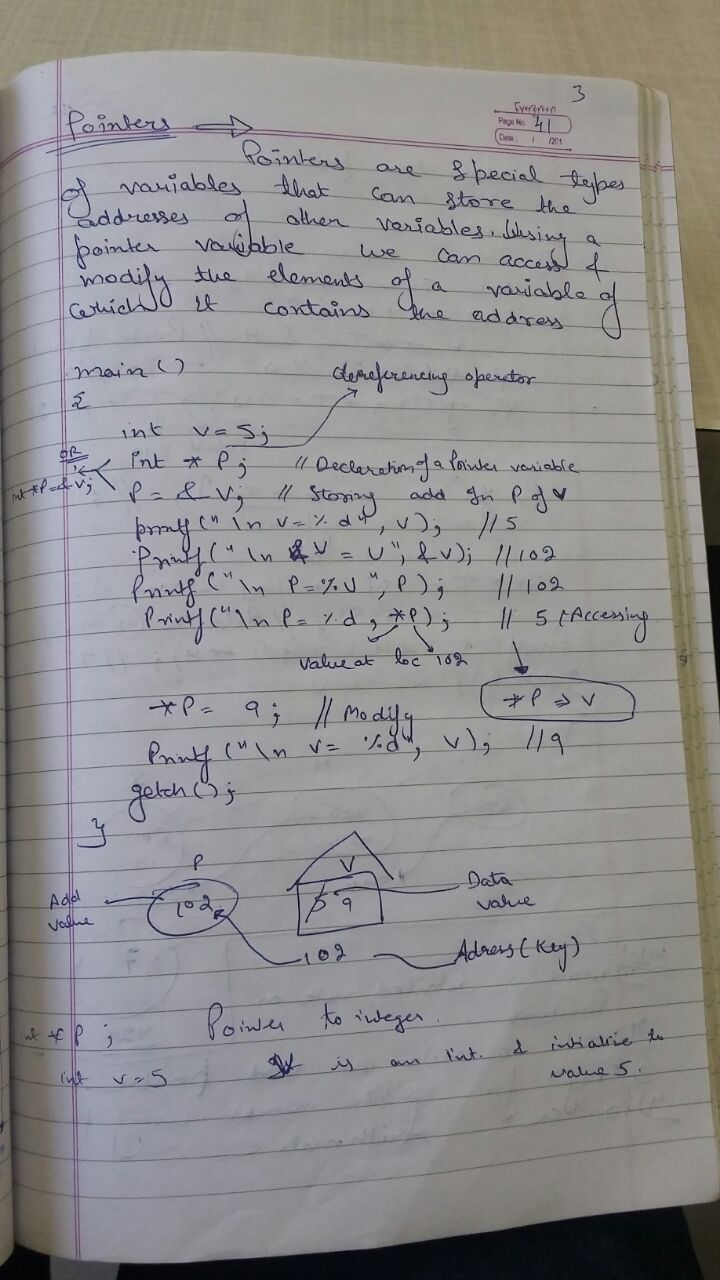 3
Evergreen
Page No. 41
Date: / /201
Pointers →
Pointers are special types
of variables that can store the
addresses of other variables. Using a
pointer variable we can access &
modify the elements of a variable of
which it contains the address
main ()
dereferencing operator
{
int v = 5;
OR
int *P = &v;
int * P; // Declaration of a Pointer variable
P = & V; // Storing add in P of V
printf ("\n v = %d", v); // 5
Printf (" \n &V = U", &v); // 102
Printf ("\n P = %U", P); // 102
Printf ("\n P = %d, *P); // 5 (Accessing
value at loc 102
*P ⇒ V
*P = 9; // Modify
Printf ("\n v = %d", v); // 9
getch();
}
P
V
Add value
102
5 9
Data value
102
Adress (Key)
int * P ; Pointer to integer.
int v = 5 is an int. & intialise to
value 5.